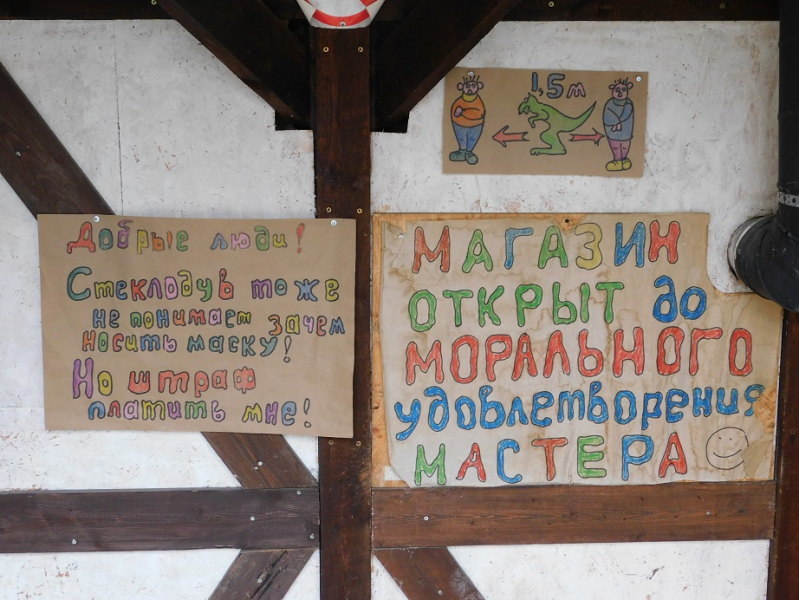 1,5м
Добрые люди!
Стеклодув тоже
не понимает зачем
носить маску!
Но штраф
платить мне!
МАГАЗИН
ОТКРЫТ до
МОРАЛЬНОГО
удовлетворения
МАСТЕРА